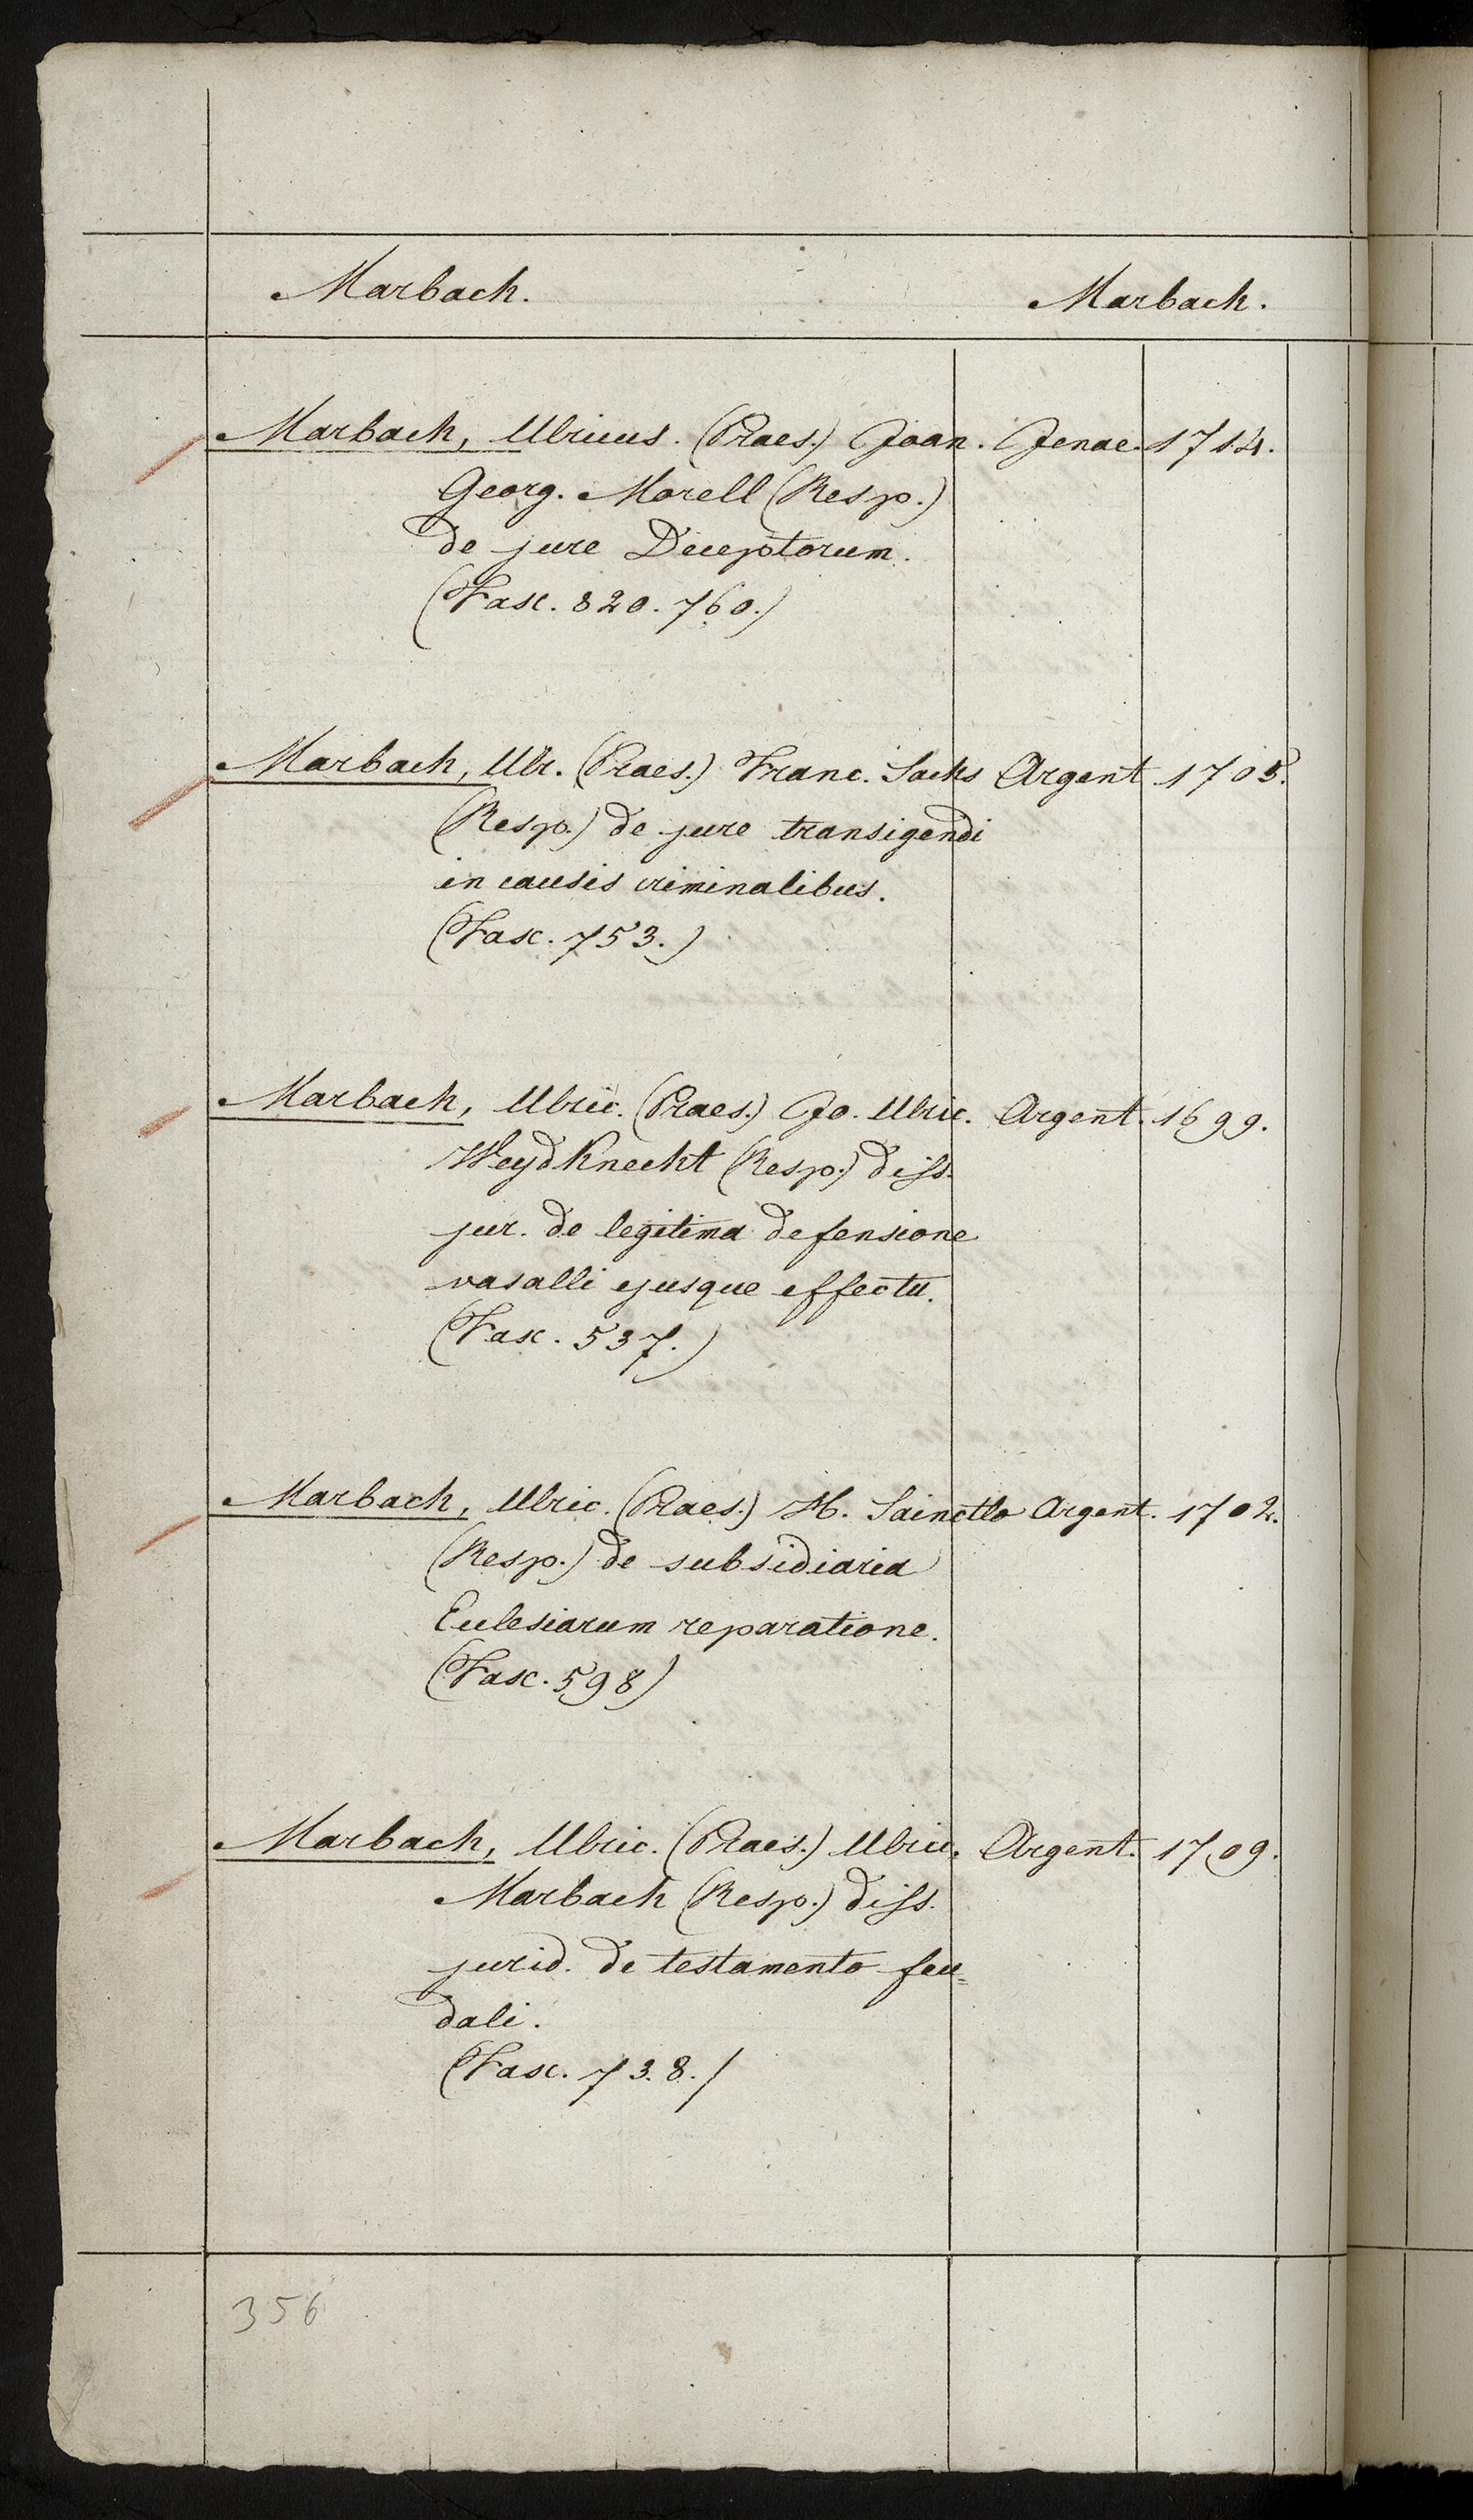 Marbach. Marbach.
Marbach, Ulricus. (Praes.) Joan. Jenae. 1714.
Georg. Morell (Resp.)
de jure Deceptorum.
(Fasc. 820. 760.)
Marbach, Ulr. (Praes.) Franc. Sachs Argent. 1705.
(Resp.) de jure transigendi
in causis criminalibus.
(Fasc. 753.)
Marbach, Ulric. (Praes.) Jo. Ulric. Argent. 1699.
Weydknecht (Resp.) diss.
jur. de legitima defensione
vasalli ejusque effectu.
(Fasc. 537.)
Marbach, Ulric. (Praes.) H. Argent. 1702.
(Resp.) de subsidiaria
Ecclesiarum reparatione.
(Fasc. 598)
Marbach, Ulric. (Praes.) Ulric. Argent. 1709.
Marbach (Resp.) diss.
jurid. de testamento feu-
dali.
(Fasc. 738.)
356